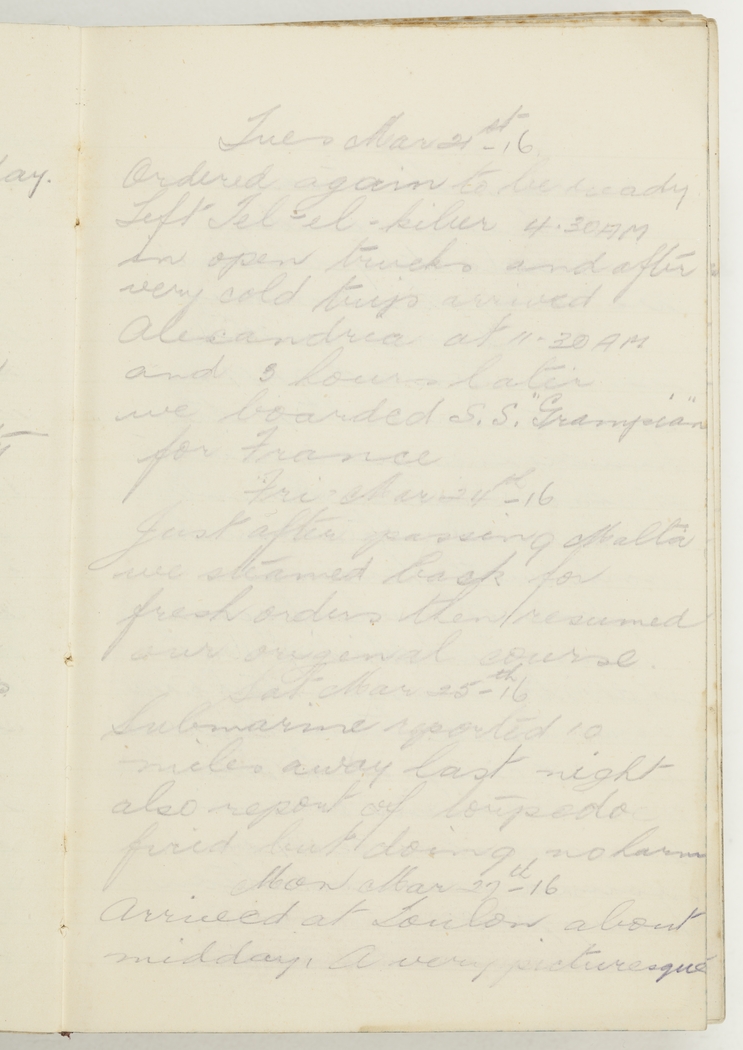 ay.
Tues Mar 21st-16
Ordered again to be ready
Left Tel-el-kiber 4.30AM
in open trucks and after
very cold trip arrived
Alexandria at 11.30AM
and 3 hours later
we boarded S.S. "Grampian"
for France
Fri Mar 24th-16
Just after passing Malta
we steamed back for
fresh orders then resumed
our original course.
Sat Mar 25th-16
Submarine reported 10
miles away last night
also report of torpedo
fired but doing no harm
Mon Mar 27th-16
Arrived at Toulon about
midday. A very picturesque